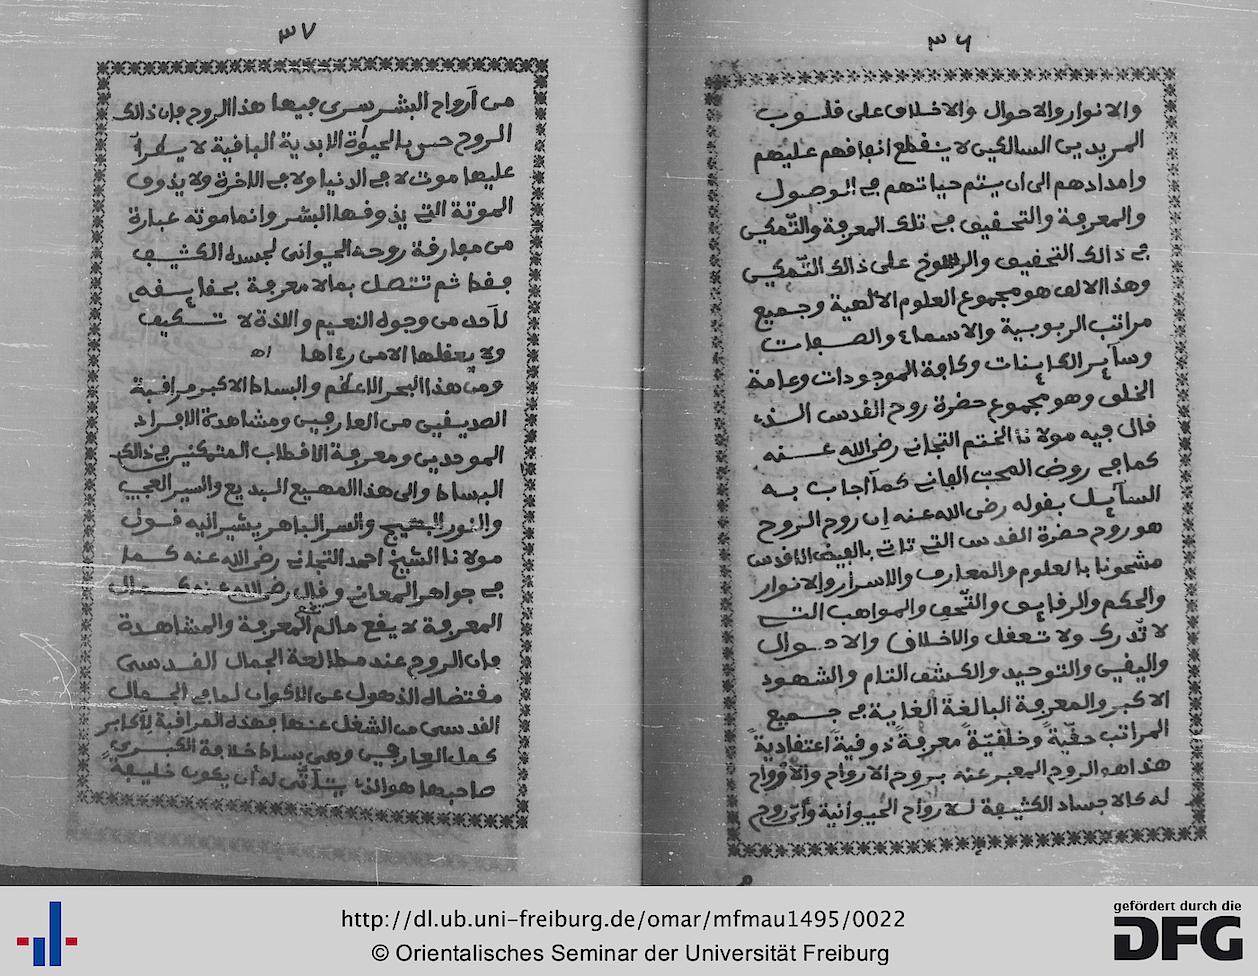 ٣٦
والانوار والاحوال والاخلاق على قلوب
المريدين السالكين لا ينقطع اتحافهم عليهم
وامدادهم الى ان يتم حياتهم في الوصول
والمعرفة والتحقيق في تلك المعرفة والتمكين
في ذالك التحقيق والرسوخ على ذالك التمكين
وهذا الالف هو مجموع العلوم الالهية وجميع
مراتب الربوبية والاسماء والصفات
وسآير الكاينات وكافة الموجودات وعامة
الخلق وهو مجموع حضرة روح القدس الذي
قال فيه مولانا الختم التجاني رضى الله عنه
كما في روض المحب الفاني كما أجاب به
السآيل بقوله رضى الله عنه ان روح الروح
هو روح حضرة القدس التي تاتي بالفيض الاقدس
مشحونا بالعلوم والمعارف والاسرار والانوار
والحكم والرقايق والتحف والمواهب التي
لا تدرك ولا تعقل والاخلاق والاحوال
واليقين والتوحيد والكشف التام والشهود
الاكبر والمعرفة البالغة الغاية في جميع
المراتب حقية وخلقية معرفة ذوقية اعتقادية
هذا هو الروح المعبر عنه بروح الارواح والارواح
له كالاجساد الكثيفة للارواح الحيوانية وأي روح
٣٧
من أرواح البشر سرى فيها هذا الروح فان ذالك
الروح حيي بالحيوة الابدية الباقية لا يطرأ
عليها موت لا في الدنيا ولا في الاخرة ولا يذوق
الموتة التي يذوقها البشر وانما موته عبارة
من مفارقة روحه الحيواني لجسده الكثيف
فقط ثم تتصل بما لا معرفة بحقايقه
لأحد من وجوه النعيم واللذة لا تتكيف
ولا يعقلها الا من رءاها اه
ومن هذا البحر الاعظم والبساط الاكبر مراقبة
الصديقين من العارفين ومشاهدة الافراد
الموحدين ومعرفة الاقطاب المتمكنين في ذالك
البساط والى هذا المهيع البديع والسير العجيب
والنور البهيج والسر الباهر يشير اليه قول
مولانا الشيخ احمد التجاني رضى الله عنه كما
في جواهر المعاني وقال رضى الله عنه كمال
المعرفة لا يقع مالم تقع المعرفة والمشاهدة
فان الروح عند مطالعة الجمال القدسي
مقتضاه الذهول عن الاكوان لما في الجمال
القدسي من الشغل عنها فهذه المراقبة لأكابر
كمل العارفين وهي بساط خلافة الكبرى
صاحبها هو الذي يتأتى له أن يكون خليفة
http://dl.ub.uni-freiburg.de/omar/mfmau1495/0022
© Orientalisches Seminar der Universität Freiburg
gefördert durch die
DFG